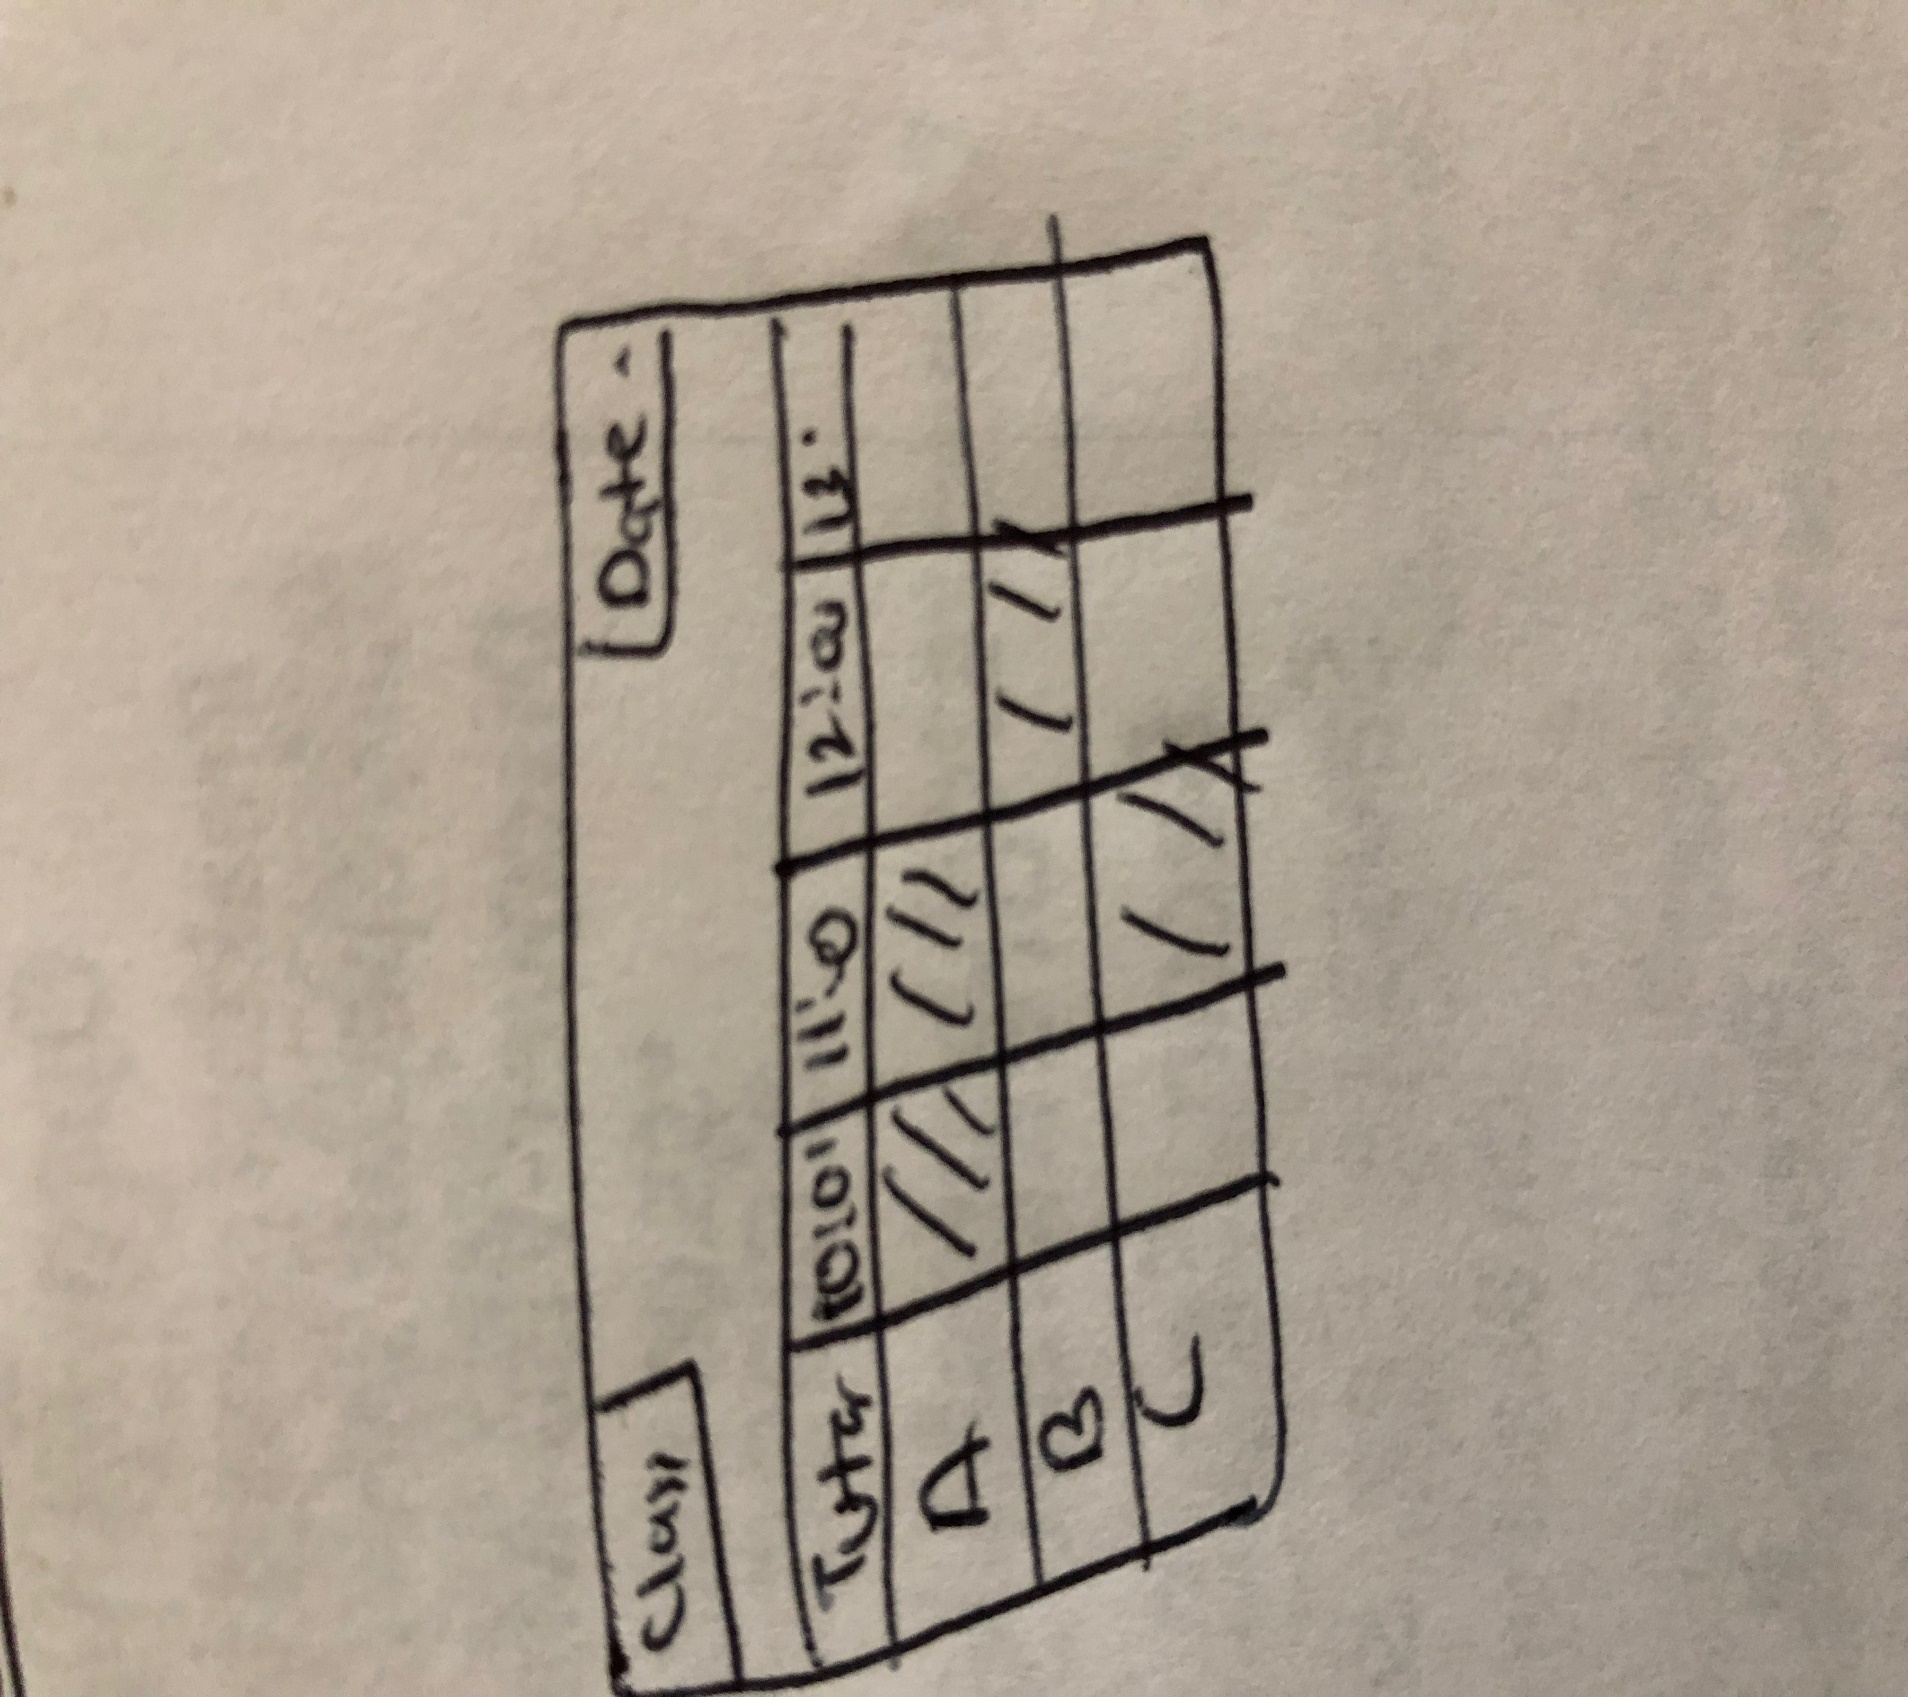 Class Date.
Tutor 10:00 11:00 12:00 13.
A
B
C